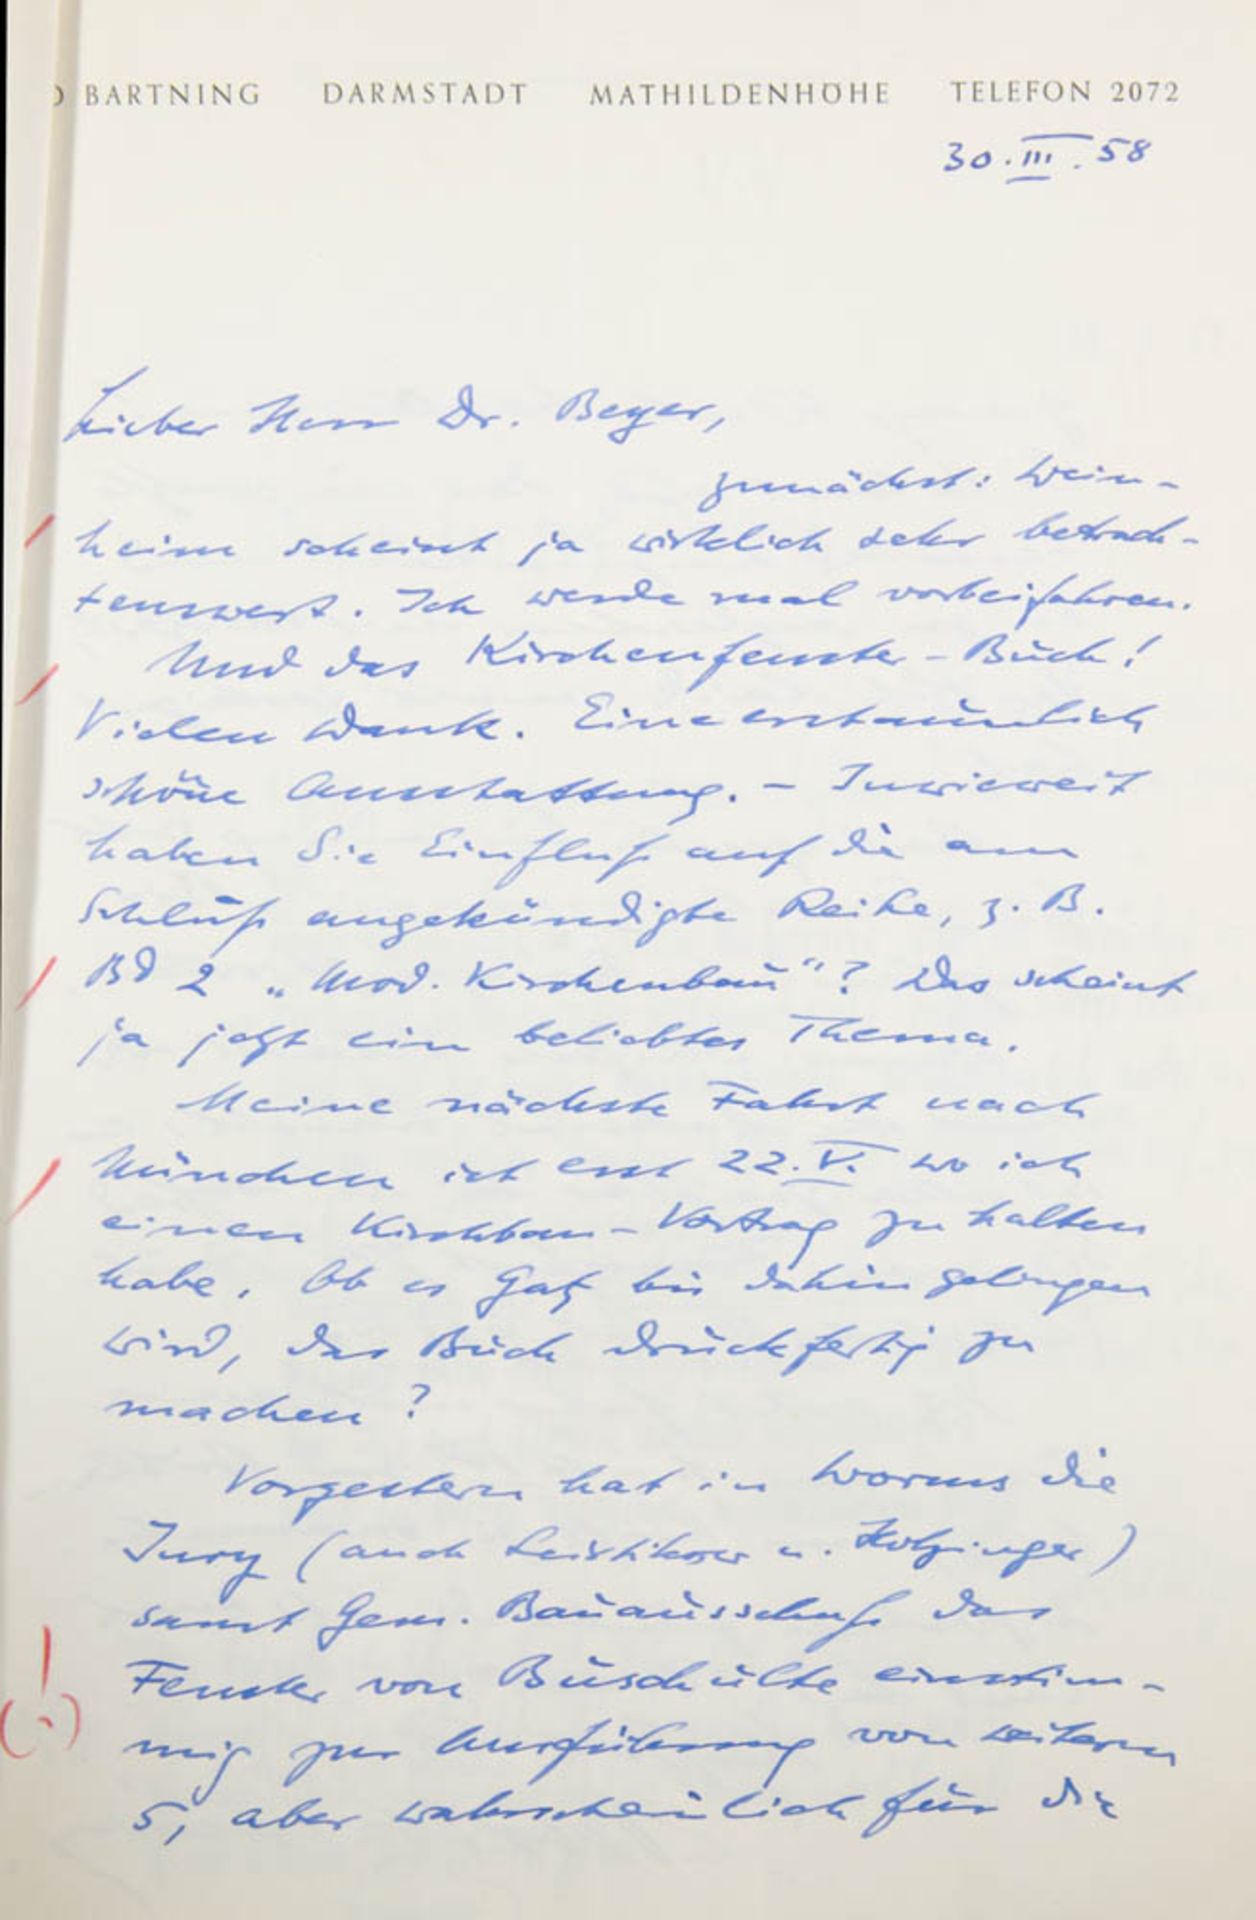 D BARTNING DARMSTADT MATHILDENHÖHE TELEFON 2072
30.III.58
Lieber Herr Dr. Beyer,
zunächst: Wein-
heim scheint ja wirklich sehr betrach-
tenswert. Ich werde mal vorbeifahren.
Und das Kirchenfenster-Buch!
Vielen Dank. Eine erstaunlich
schöne Ausstattung. – Inwieweit
haben Sie Einfluß auf die am
Schluß angekündigte Reihe, z. B.
Bd 2 „Mod. Kirchenbau"? Das scheint
ja jetzt ein beliebtes Thema.
Meine nächste Fahrt nach
München ist erst 22.V. wo ich
einen Kirchbau-Vortrag zu halten
habe. Ob es Gatz bis dahin gelingen
wird, das Buch druckfertig zu
machen?
Vorgestern hat in Worms die
Jury (auch Leistikow u. Holzinger)
samt Gem. Bauausschuß das
Fenster von Buschulte einstim-
mig zur Ausführung von weiteren
5, aber wahrscheinlich für die
(!)